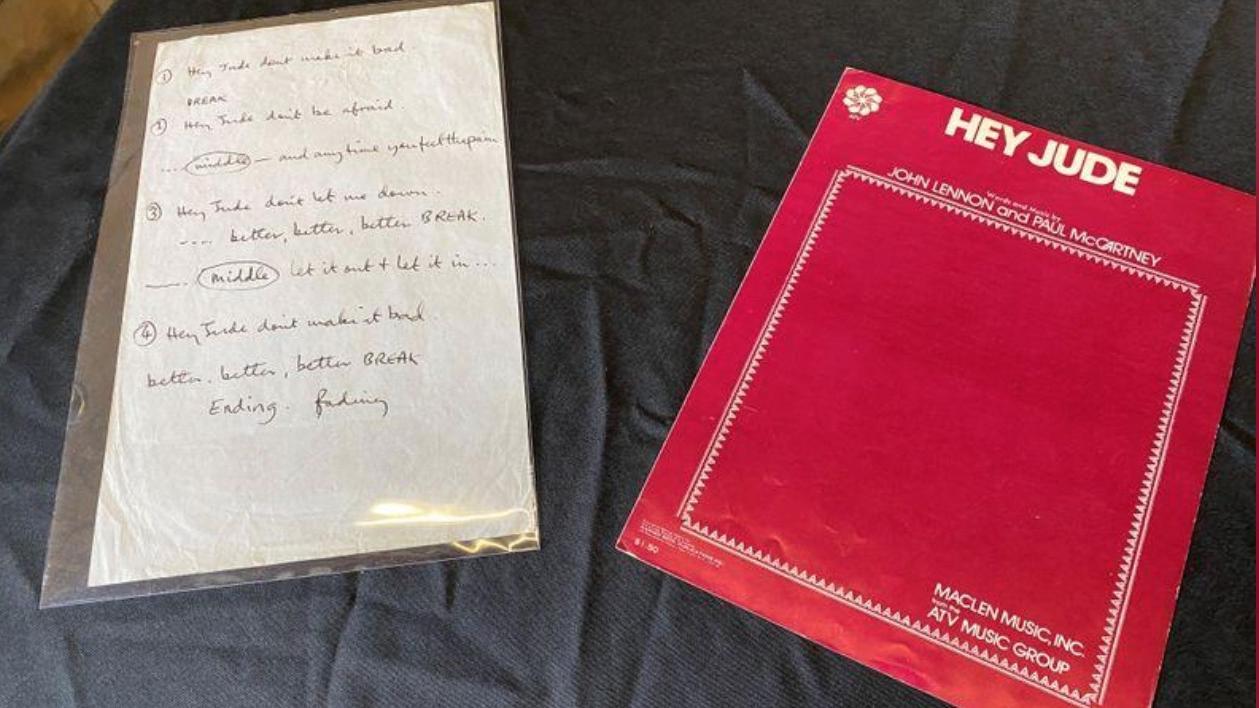 ① Hey Jude don't make it bad.
BREAK
② Hey Jude don't be afraid.
.... middle — and anytime you feel the pain
③ Hey Jude don't let me down.
---- better, better, better BREAK.
____. middle let it out + let it in ...
④ Hey Jude don't make it bad.
better. better, better BREAK
Ending. fading
HEY JUDE
Words and Music by
JOHN LENNON and PAUL McCARTNEY
$1.50
MACLEN MUSIC, INC.
from the
ATV MUSIC GROUP